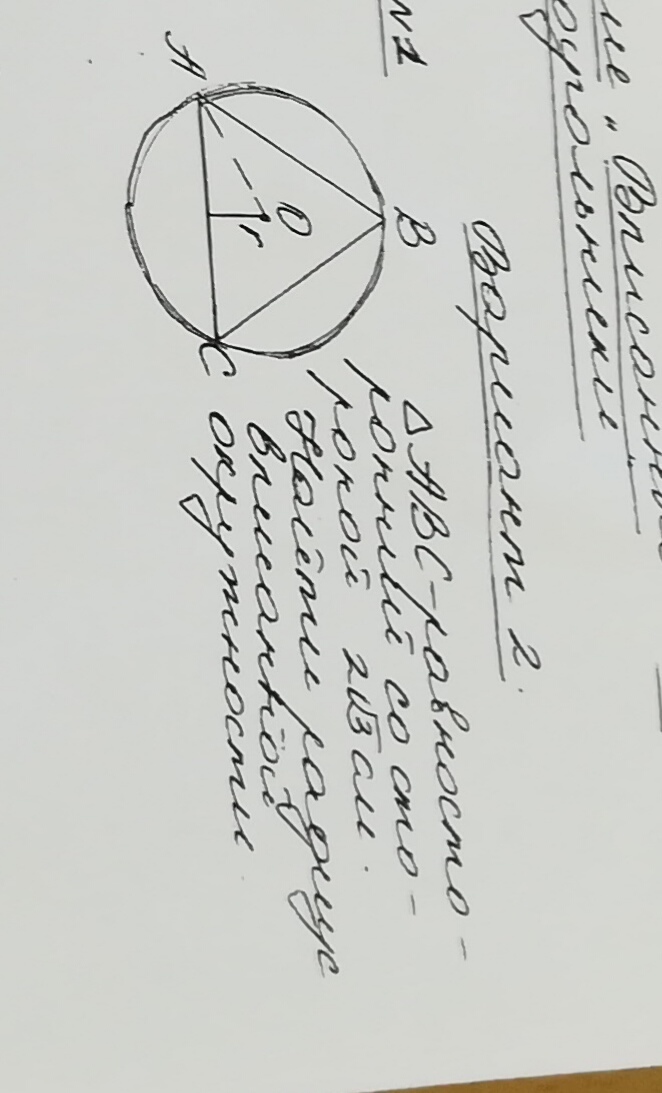 " Вписанн
Вариант 2.
N1
A
B
C
O
r
△ABC-равносто-
ронний со сто-
роной 2√3 см.
Найти радиус
вписанной
окружности.